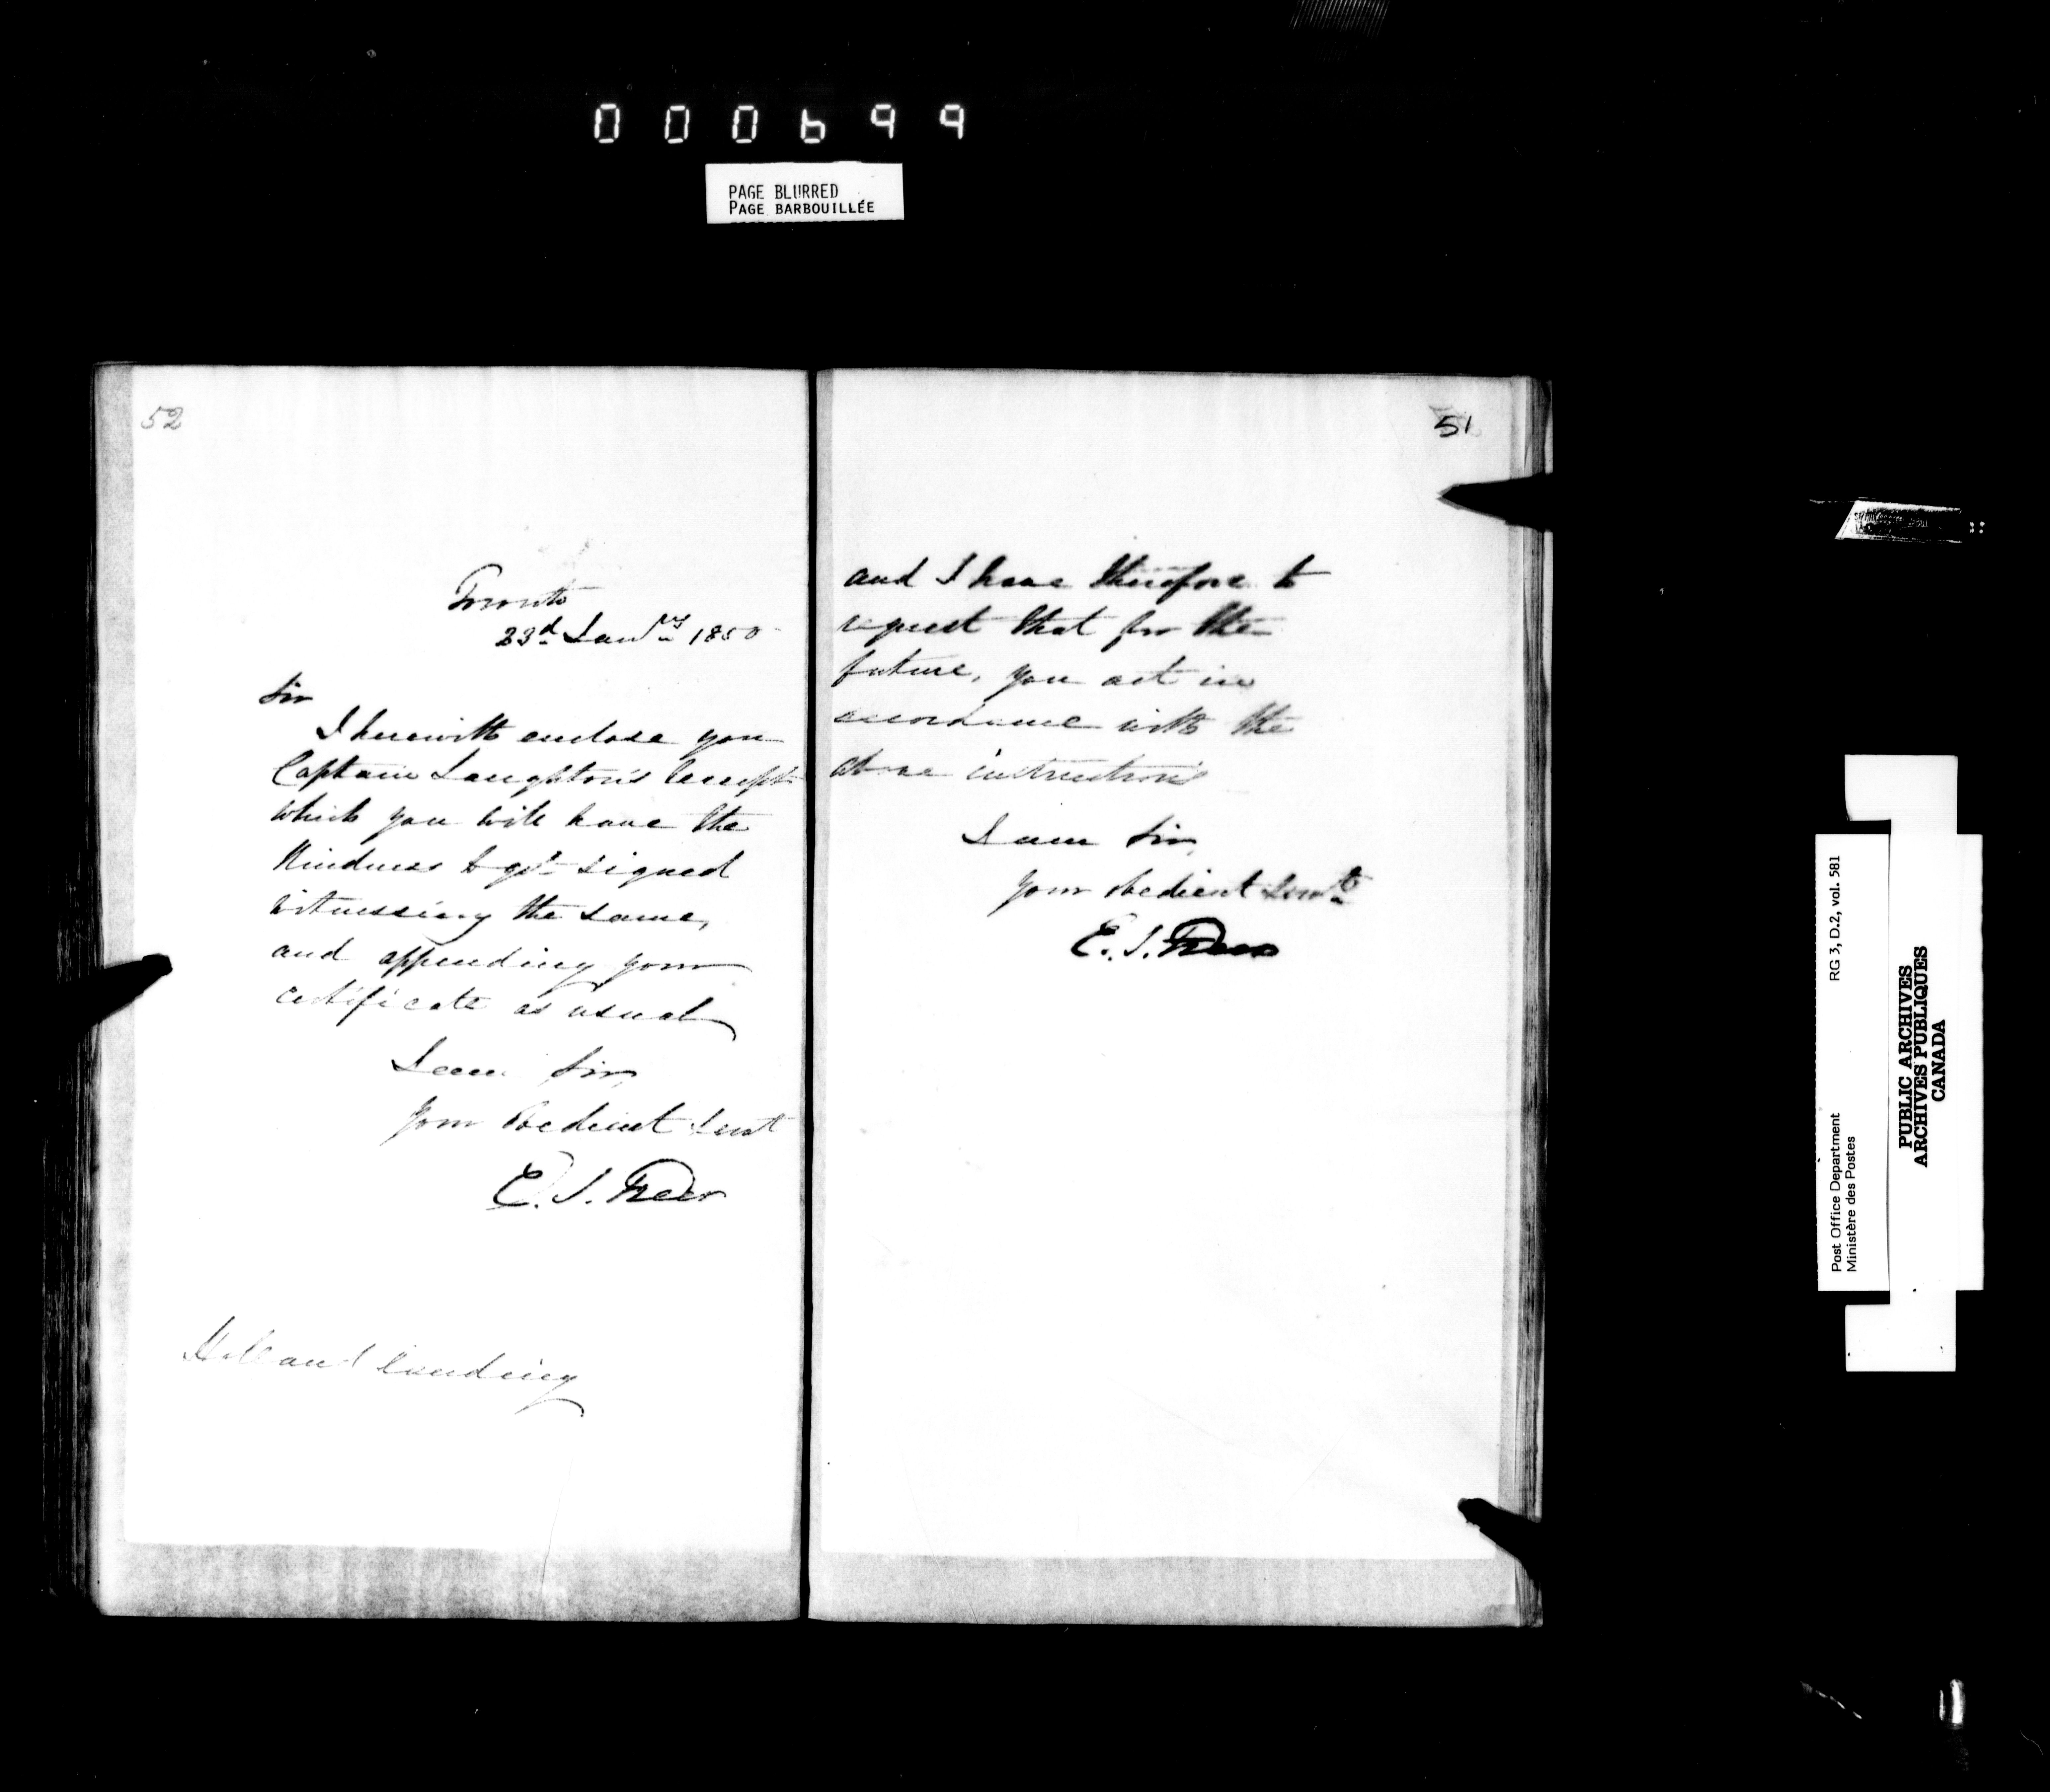 000699
PAGE BLURRED
PAGE BARBOUILLÉE
52
Toronto
23d Jany 1850
Sir
I herewith enclose you
Captain Laughton's receipt
which you will have the
kindness to get signed
witnessing the same,
and appending your
certificate as usual
I am Sir,
your obedient servt
E. S. Freer
Holland Landing
51
and I have therefore to
request that for the
future, you act in
accordance with the
above instructions
I am Sir,
your obedient servt
E. S. Freer
RG 3, D.2, vol. 581
Post Office Department
Ministère des Postes
PUBLIC ARCHIVES
ARCHIVES PUBLIQUES
CANADA